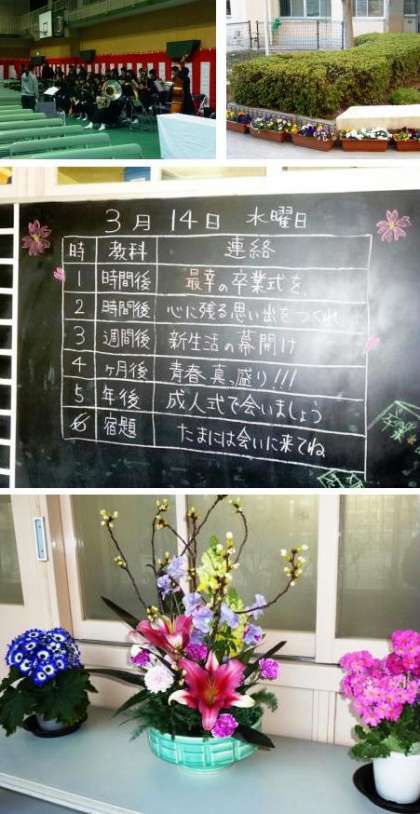 3月14日 水曜日
時 教科 連絡
1 時間後 最幸の卒業式を
2 時間後 心に残る思い出をつくれ
3 週間後 新生活の幕開け
4 ヶ月後 青春真っ盛り!!!
5 年後 成人式で会いましょう
6 宿題 たまには会いに来てね